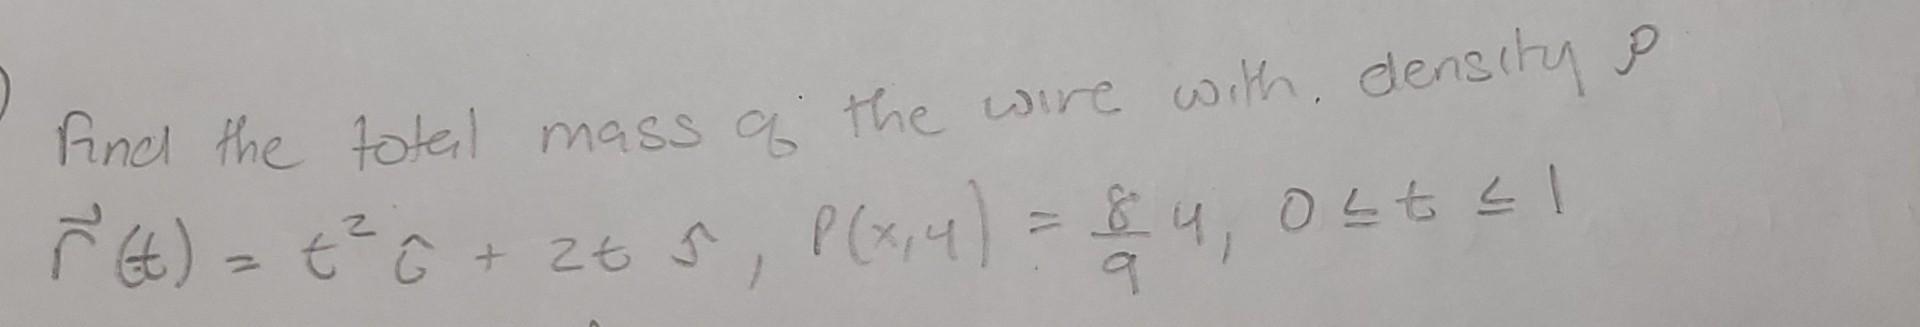 Find the total mass of the wire with. density ρ
r⃗(t) = t² î + 2t ĵ, ρ(x,y) = 8/9 y, 0 ≤ t ≤ 1